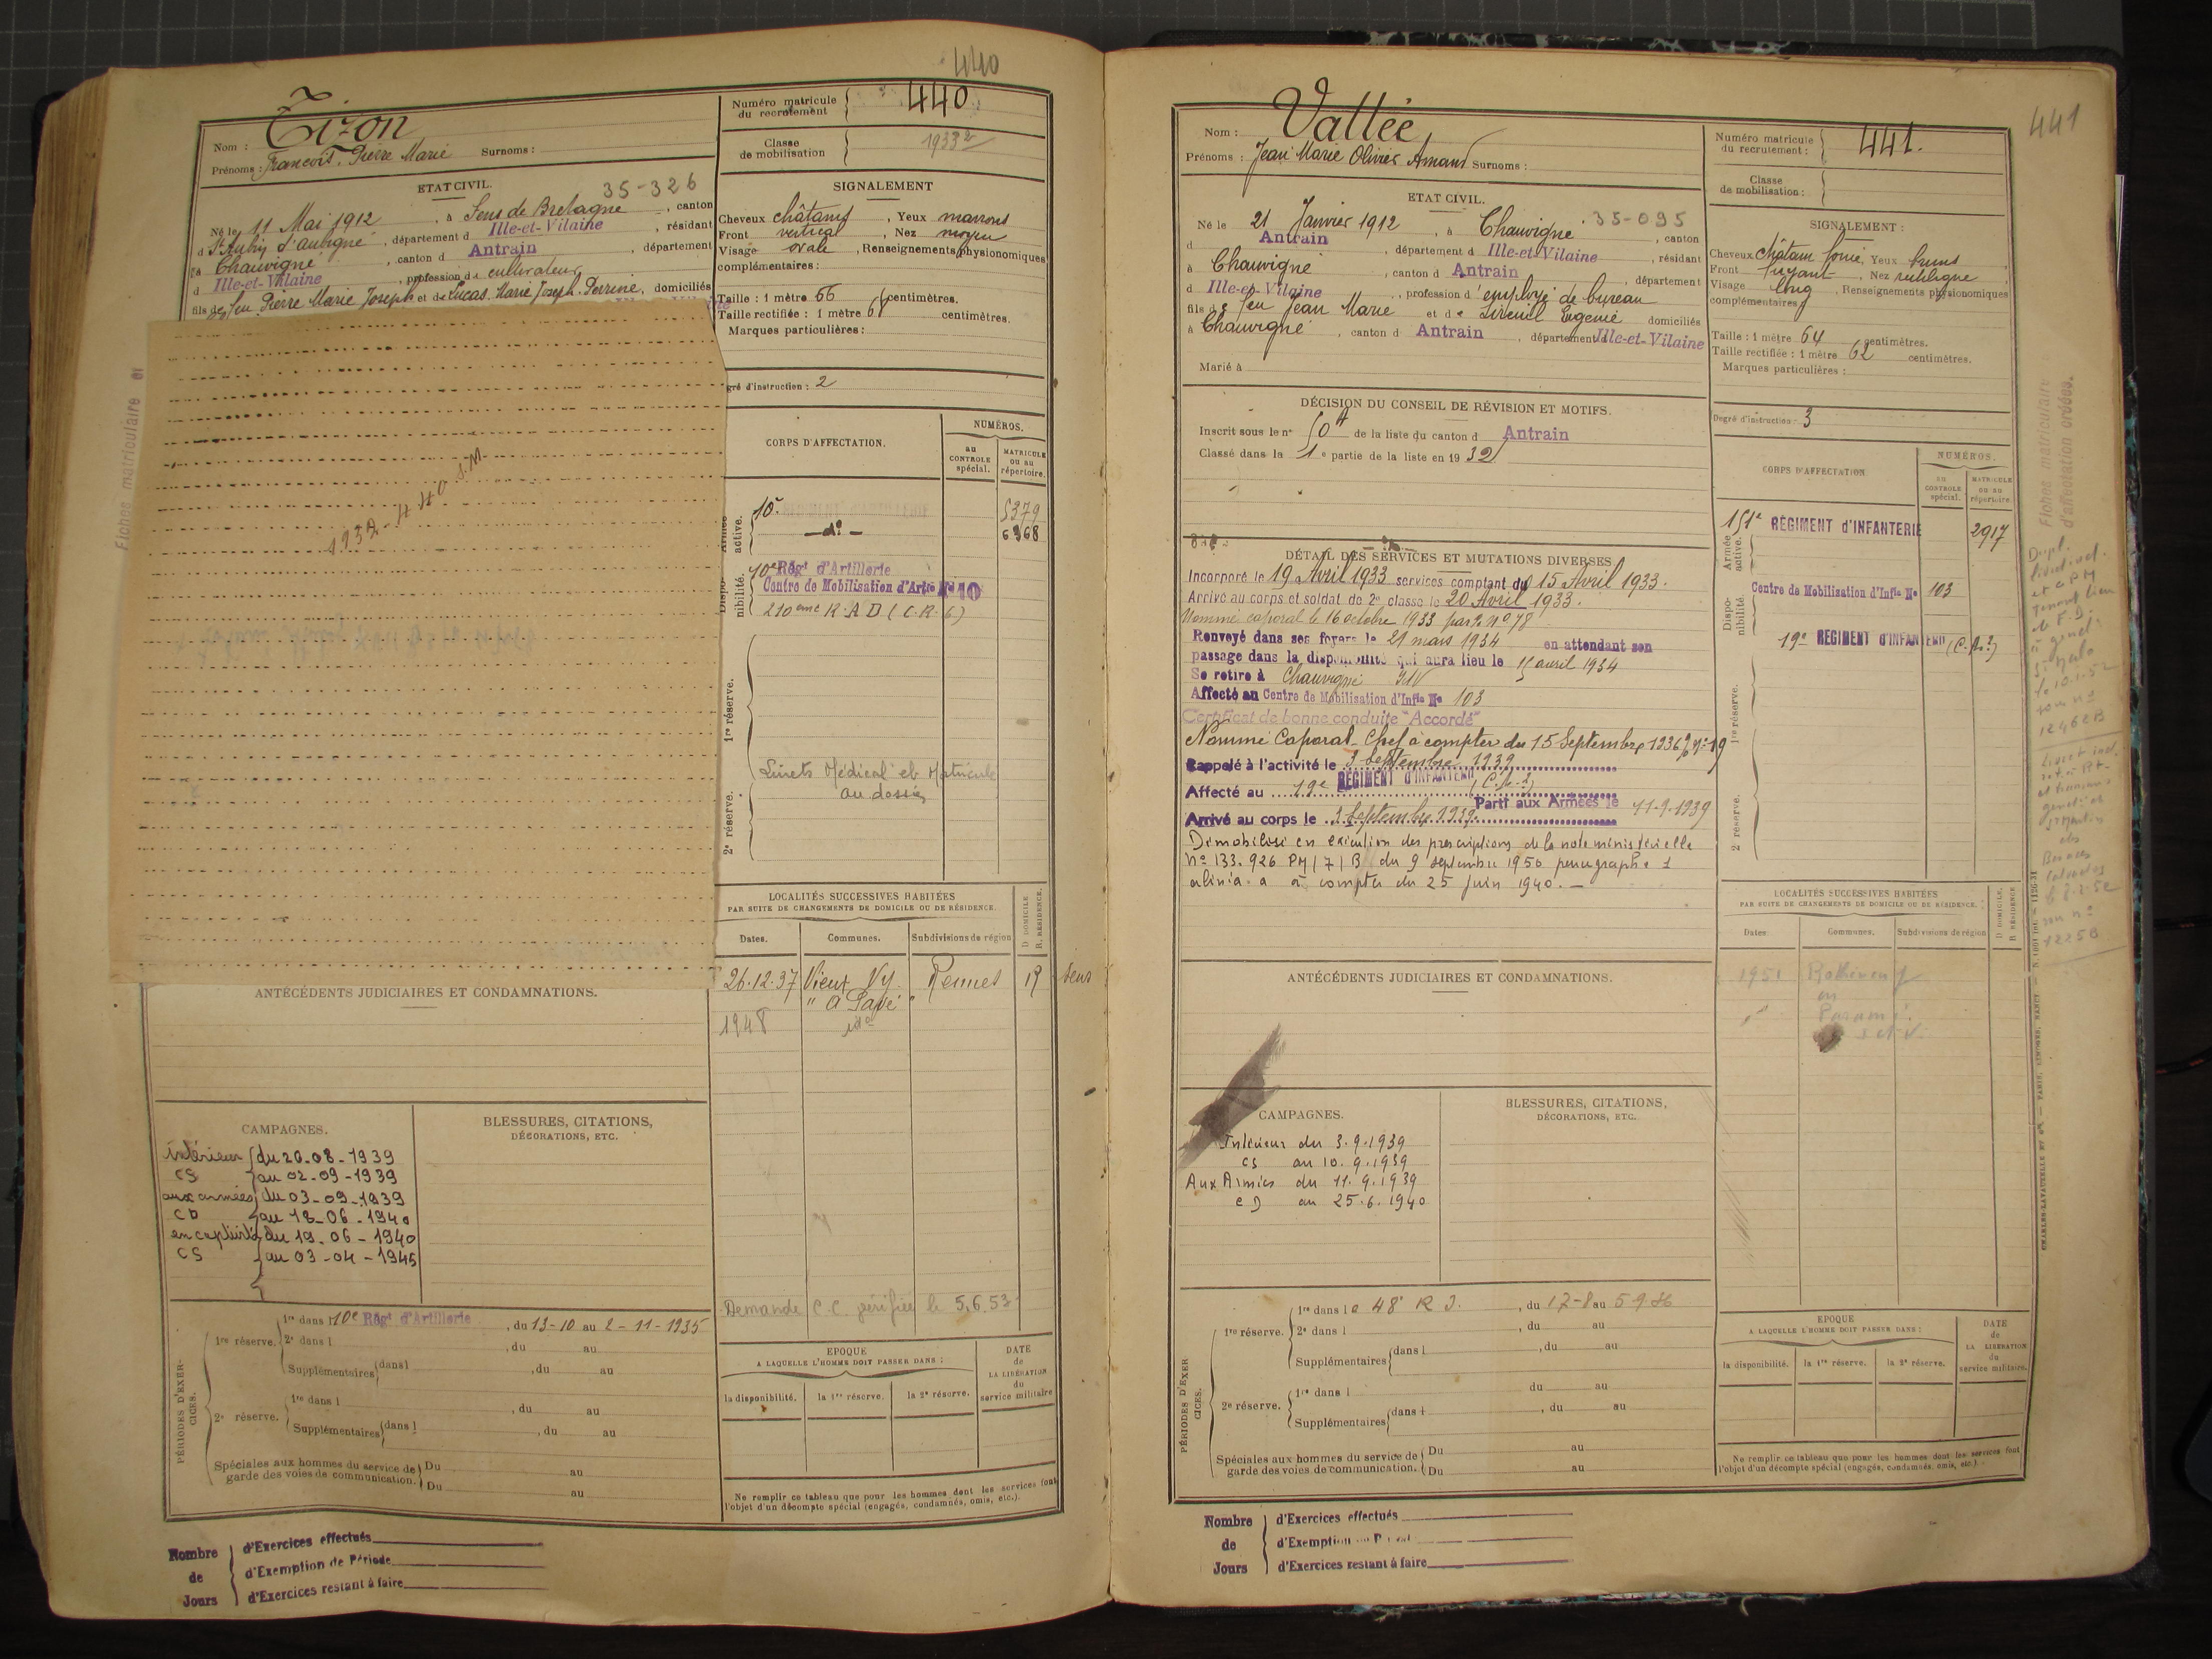 440
Nom : Tizon
Prénoms : François, Pierre Marie Surnoms :
Numéro matricule du recrutement 440
Classe de mobilisation 1933
ETAT CIVIL.
35-326
Né le 11 Mai 1912, à Sens de Bretagne, canton
d St Aubin d'aubigné, département d Ille-et-Vilaine, résidant
à Chauvigné, canton d Antrain, département
d Ille-et-Vilaine, profession de cultivateur
fils de feu Pierre Marie Joseph et de Lucas Marie Joseph Perrine, domiciliés
SIGNALEMENT
Cheveux châtains, Yeux marrons
Front vertical, Nez moyen
Visage ovale, Renseignements physionomiques
complémentaires :
Taille : 1 mètre 66 centimètres.
Taille rectifiée : 1 mètre 6 centimètres.
Marques particulières :
gré d'instruction : 2
Fiches matriculaire et
1932 - 440 S.M.
CORPS D'AFFECTATION.
NUMÉROS.
au CONTROLE spécial.
MATRICULE ou au répertoire.
Armée active.
10e
5379
- d° -
6368
Dispo-nibilité.
10e Régt d'Artillerie
Centre de Mobilisation d'Artie N° 10
210ème R.A.D (C.R. 6)
1re réserve.
Livrets Médical et Matricule
au dossier
2e réserve.
LOCALITÉS SUCCESSIVES HABITÉES
PAR SUITE DE CHANGEMENTS DE DOMICILE OU DE RÉSIDENCE.
D DOMICILE
R. RÉSIDENCE.
Dates. Communes. Subdivisions de région
26.12.37 Vieux Vy Rennes R Sens
1948
Demande C.C. vérifiée le 5.6.53
ANTÉCÉDENTS JUDICIAIRES ET CONDAMNATIONS.
CAMPAGNES.
intérieur du 20-08-1939
CS au 02-09-1939
aux armées du 03-09-1939
CD au 18-06-1940
en captivité du 19-06-1940
CS au 03-04-1945
BLESSURES, CITATIONS,
DÉCORATIONS, ETC.
PÉRIODES D'EXER-CICES.
1re réserve.
1re dans l 10e Régt d'Artillerie, du 13-10 au 2-11-1935
2e dans l , du au
Supplémentaires dans l , du au
2e réserve.
1re dans l , du au
Supplémentaires dans l , du au
Spéciales aux hommes du service de
garde des voies de communication.
Du au
Du au
EPOQUE
A LAQUELLE L'HOMME DOIT PASSER DANS :
la disponibilité. la 1re réserve. la 2e réserve.
DATE de LA LIBÉRATION du service militaire
Ne remplir ce tableau que pour les hommes dont les services font
l'objet d'un décompte spécial (engagés, condamnés, omis, etc.).
Nombre de Jours
d'Exercices effectués
d'Exemption de Période
d'Exercices restant à faire
441
Nom : Vallée
Prénoms : Jean Marie Olivier Amand Surnoms :
Numéro matricule du recrutement : 441.
Classe de mobilisation :
ETAT CIVIL.
Né le 21 Janvier 1912, à Chauvigné 35-095, canton
d Antrain, département d Ille-et-Vilaine, résidant
à Chauvigné, canton d Antrain, département
d Ille-et-Vilaine, profession d'employé de bureau
fils de feu Jean Marie et de Eugenie domiciliés
à Chauvigné, canton d Antrain, département d Ille-et-Vilaine
Marié à
SIGNALEMENT :
Cheveux châtain foncé, Yeux bruns
Front fuyant, Nez rectiligne
Visage long, Renseignements physionomiques
complémentaires
Taille : 1 mètre 64 centimètres.
Taille rectifiée : 1 mètre 62 centimètres.
Marques particulières :
Degré d'instruction : 3
DÉCISION DU CONSEIL DE RÉVISION ET MOTIFS.
Inscrit sous le n° 50 A de la liste du canton d Antrain
Classé dans la 1e partie de la liste en 1932
DÉTAIL DES SERVICES ET MUTATIONS DIVERSES
Incorporé le 19 Avril 1933 services comptant du 15 Avril 1933.
Arrivé au corps et soldat de 2e classe le 20 Avril 1933.
Nommé caporal le 16 octobre 1933 par N° 78
Renvoyé dans ses foyers le 21 mars 1934 en attendant son
passage dans la disponibilité qui aura lieu le 15 avril 1934
Se retire à Chauvigné I&V
Affecté au Centre de Mobilisation d'Infie N° 103
Certificat de bonne conduite "Accordé"
Nommé Caporal-Chef à compter du 15 Septembre 1936 N° 19
Rappelé à l'activité le 3 Septembre 1939
Affecté au 19e REGIMENT D'INFANTERIE
Parti aux Armées le 11-9-1939
Arrivé au corps le 3 Septembre 1939
Démobilisé en exécution des prescriptions de la note ministérielle
N° 133.926 PM/7/B du 9 septembre 1950 paragraphe 1
alinéa a à compter du 25 juin 1940.
CORPS D'AFFECTATION
NUMÉROS.
au CONTROLE spécial.
MATRICULE ou au répertoire.
Armée active.
151e RÉGIMENT D'INFANTERIE 2917
Dispo-nibilité.
Centre de Mobilisation d'Infie N° 103
19e REGIMENT D'INFANTERIE
1re réserve.
2e réserve.
Fiches matriculaire
d'affectation créées.
LOCALITÉS SUCCESSIVES HABITÉES
PAR SUITE DE CHANGEMENTS DE DOMICILE OU DE RÉSIDENCE.
D DOMICILE.
R. RÉSIDENCE
Dates. Communes. Subdivisions de région
1951 Rothéneuf
en
Paramé
ANTÉCÉDENTS JUDICIAIRES ET CONDAMNATIONS.
CAMPAGNES.
Intérieur du 3.9.1939
CS au 10.9.1939
Aux Armées du 11.9.1939
CD au 25.6.1940
BLESSURES, CITATIONS,
DÉCORATIONS, ETC.
PÉRIODES D'EXER-CICES.
1re réserve.
1re dans le 48e R I., du 17-8 au 5-9-36
2e dans l , du au
Supplémentaires dans l , du au
2e réserve.
1re dans l du au
Supplémentaires dans l , du au
Spéciales aux hommes du service de
garde des voies de communication.
Du au
Du au
EPOQUE
A LAQUELLE L'HOMME DOIT PASSER DANS :
la disponibilité. la 1re réserve. la 2e réserve.
DATE de LA LIBÉRATION du service militaire.
Ne remplir ce tableau que pour les hommes dont les services font
l'objet d'un décompte spécial (engagés, condamnés, omis, etc.).
Nombre de Jours
d'Exercices effectués
d'Exemption
d'Exercices restant à faire